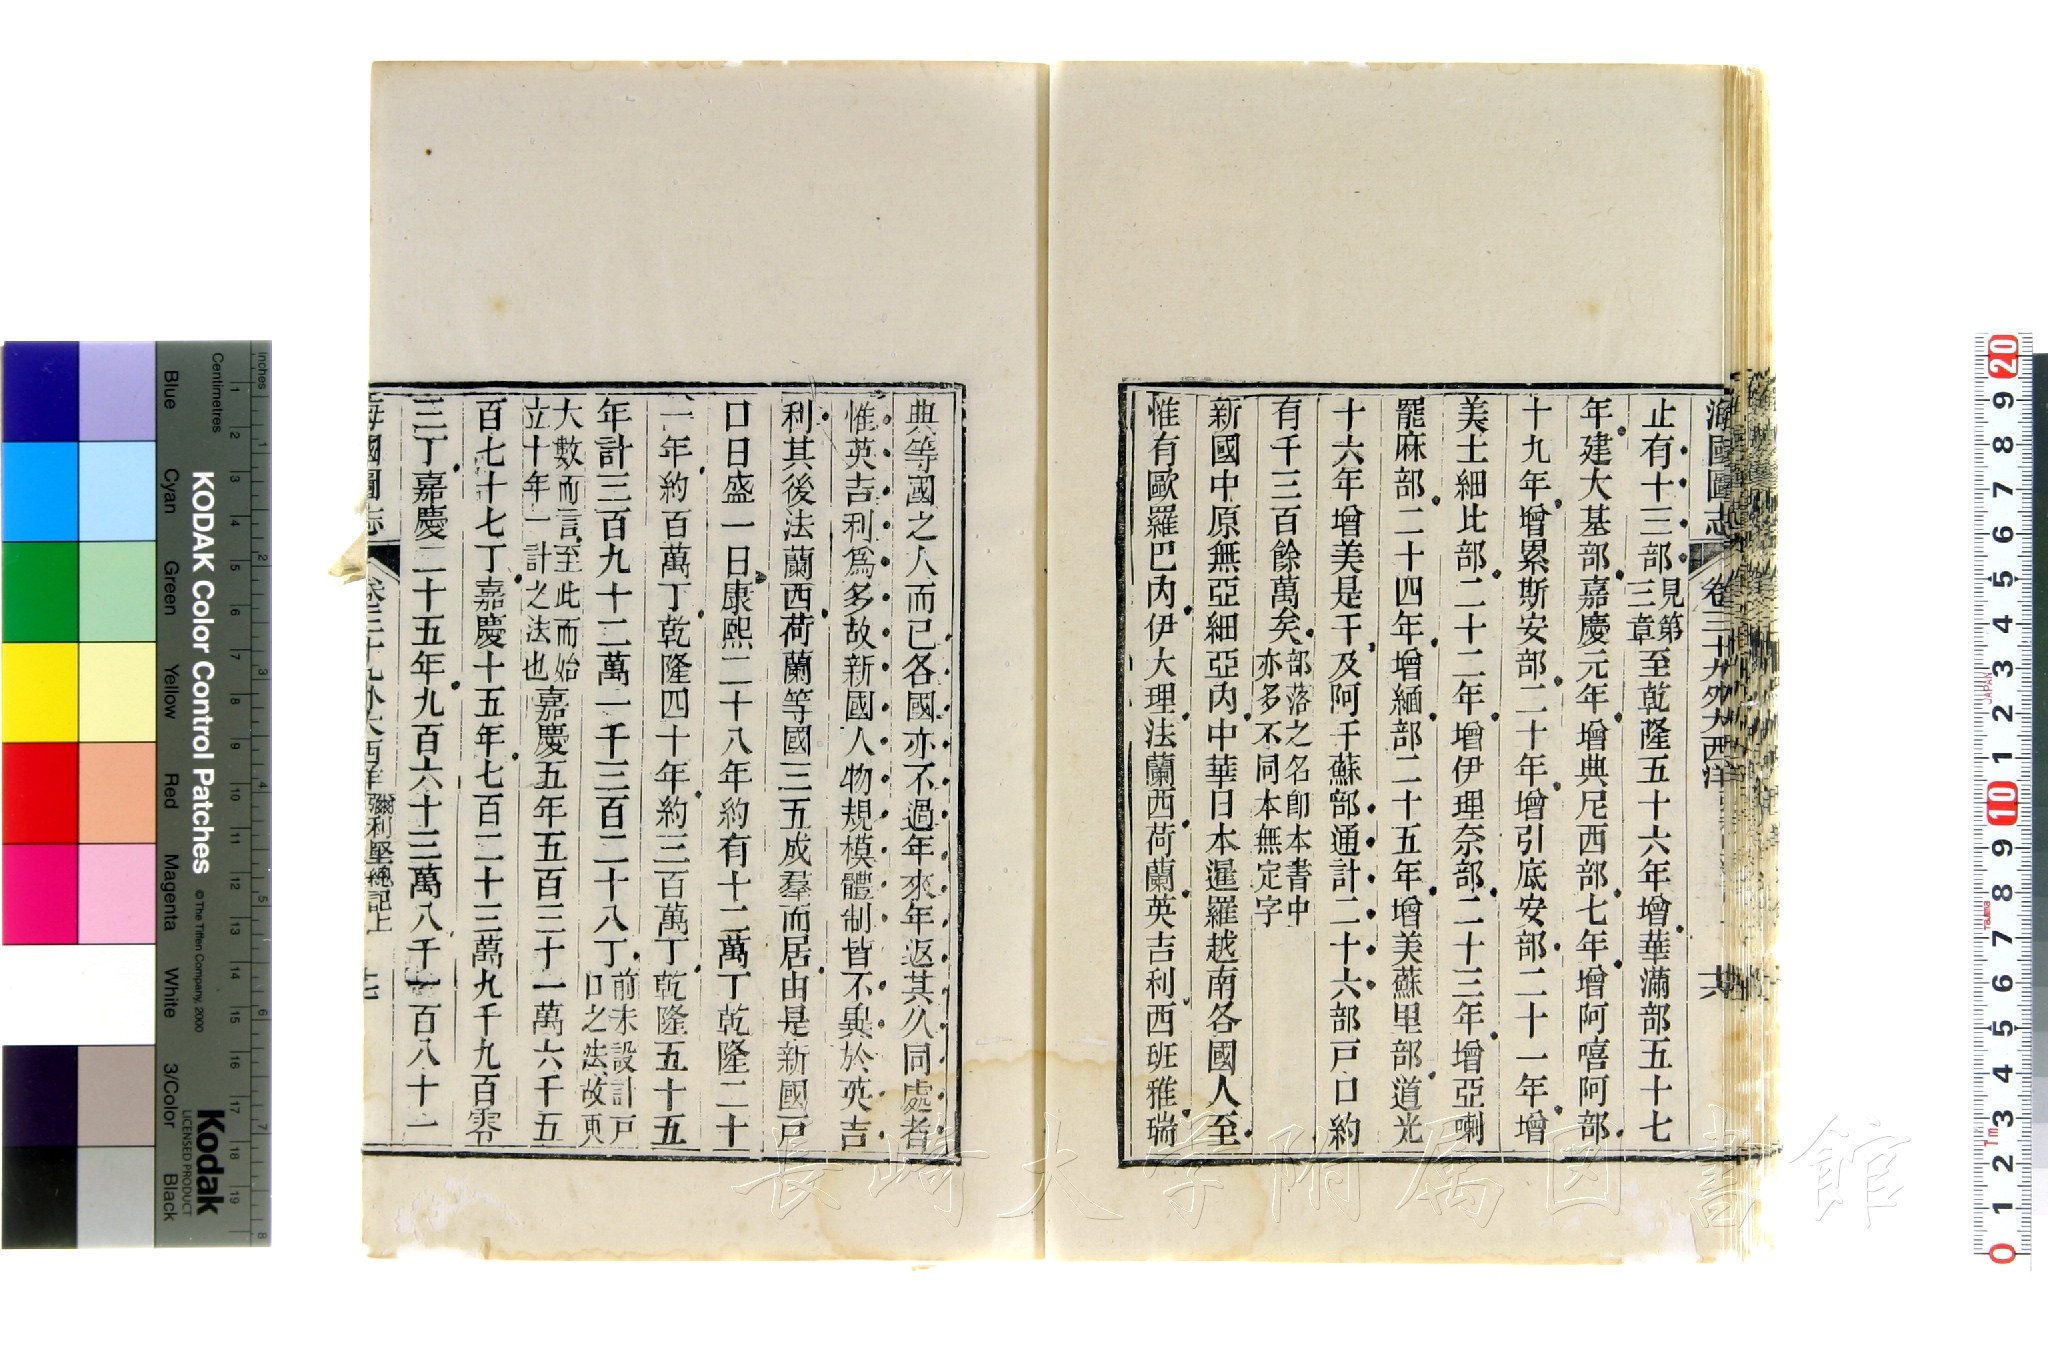 海國圖志
卷三十九外大西洋
止有十三部見第三章至乾隆五十六年增華滿部五十七
年建大基部嘉慶元年增典尼西部七年增阿嘻阿部
十九年增累斯安部二十年增引底安部二十一年增
美士細比部二十二年增伊理奈部二十三年增亞喇
罷麻部二十四年增緬部二十五年增美蘇里部道光
十六年增美是干及阿干蘇部通計二十六部戸口約
有千三百餘萬矣部落之名卽本書中亦多不同本無定字
新國中原無亞細亞內中華日本暹羅越南各國人至
惟有歐羅巴內伊大理法蘭西荷蘭英吉利西班雅瑞
典等國之人而已各國亦不過年來年返其久同處者
惟英吉利爲多故新國人物規模體制皆不異於英吉
利其後法蘭西荷蘭等國三五成羣而居由是新國戸
口日盛一日康熙二十八年約有十二萬丁乾隆二十
一年約百萬丁乾隆四十年約三百萬丁乾隆五十五
年計三百九十二萬一千三百二十八丁前未設計戸口之法故更
大數而言至此而始立十年一計之法也嘉慶五年五百三十一萬六千五
百七十七丁嘉慶十五年七百二十三萬九千九百零
三丁嘉慶二十五年九百六十三萬八千一百八十一
海國圖志
卷三十九外大西洋
彌利堅總記上
七
長崎大学附属図書館
KODAK Color Control Patches
© The Tiffen Company, 2000
Kodak
LICENSED PRODUCT
Centimetres
inches
Blue
Cyan
Green
Yellow
Red
Magenta
White
3/Color
Black
1 2 3 4 5 6 7 8 9 10 11 12 13 14 15 16 17 18 19
1 2 3 4 5 6 7 8
20 9 8 7 6 5 4 3 2 1 10 9 8 7 6 5 4 3 2 1 0
JAPAN
1m